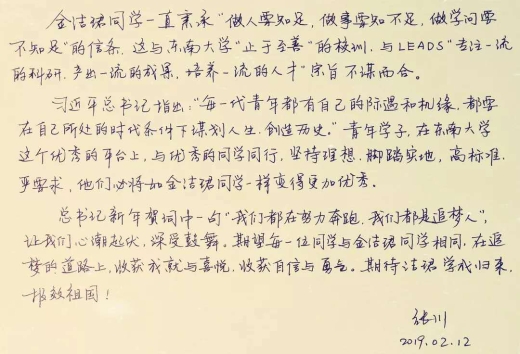 金洁珺同学一直秉承"做人要知足,做事要知不足,做学问要
不知足"的信条,这与东南大学"止于至善"的校训,与LEADS"专注一流
的科研,产出一流的成果,培养一流的人才"宗旨不谋而合。
习近平总书记指出:"每一代青年都有自己的际遇和机缘,都要
在自己所处的时代条件下谋划人生、创造历史。"青年学子,在东南大学
这个优秀的平台上,与优秀的同学同行,坚持理想、脚踏实地,高标准、
严要求,他们必将如金洁珺同学一样变得更加优秀。
总书记新年贺词中一句"我们都在努力奔跑,我们都是追梦人",
让我们心潮起伏,深受鼓舞。期望每一位同学与金洁珺同学相同,在追
梦的道路上,收获成就与喜悦,收获自信与勇气。期待洁珺学成归来,
报效祖国!
张川
2019.02.12